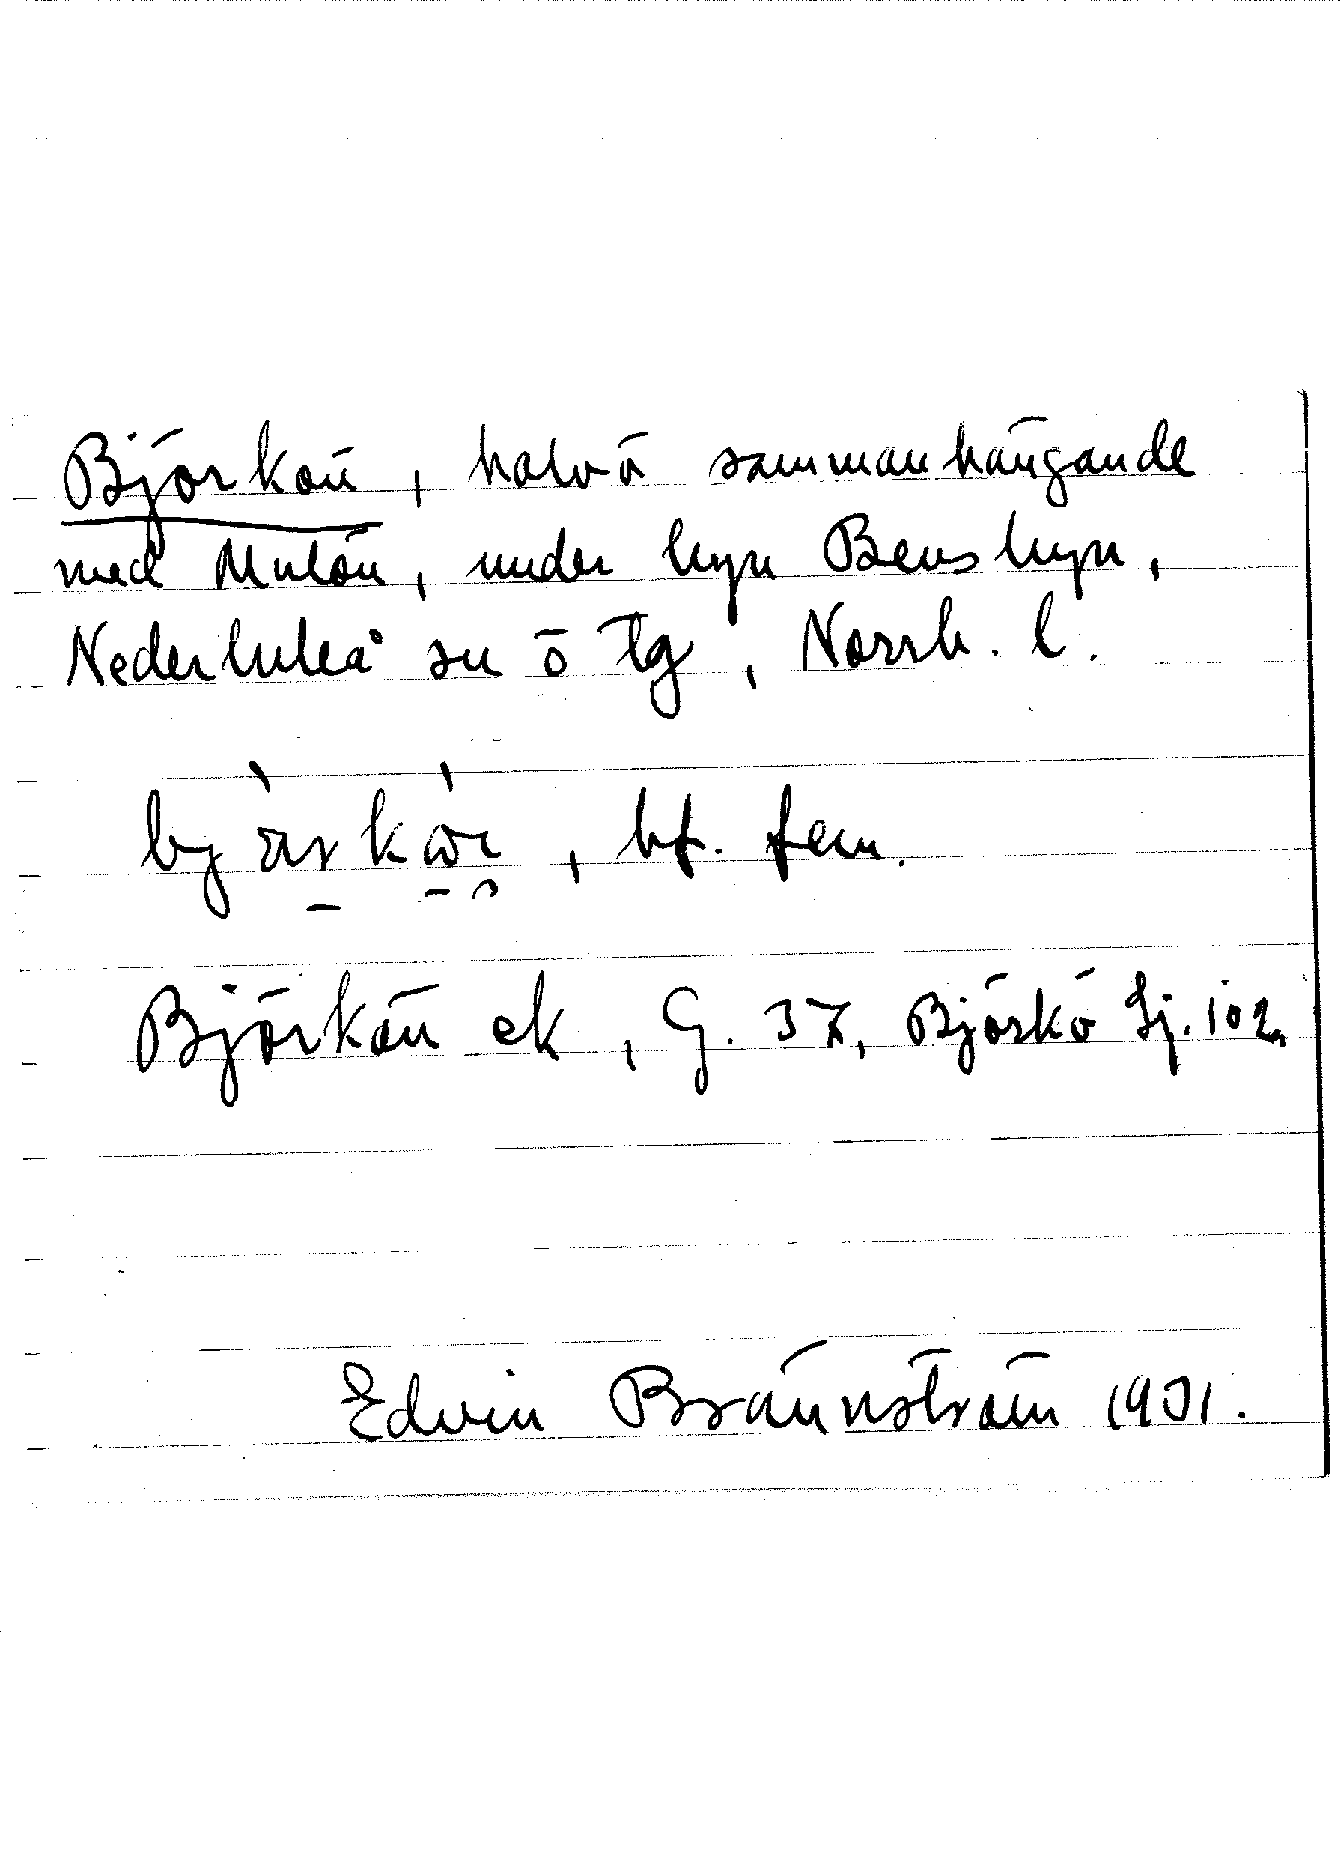 Björkön, halvö sammanhängande
med Mulön, under byn Bensbyn,
Nederluleå sn ö tg, Norrb. l.
, bf. fem.
Björkön ek, G. 37, Björkö Sj. 102.
Edvin Brännström 1931.